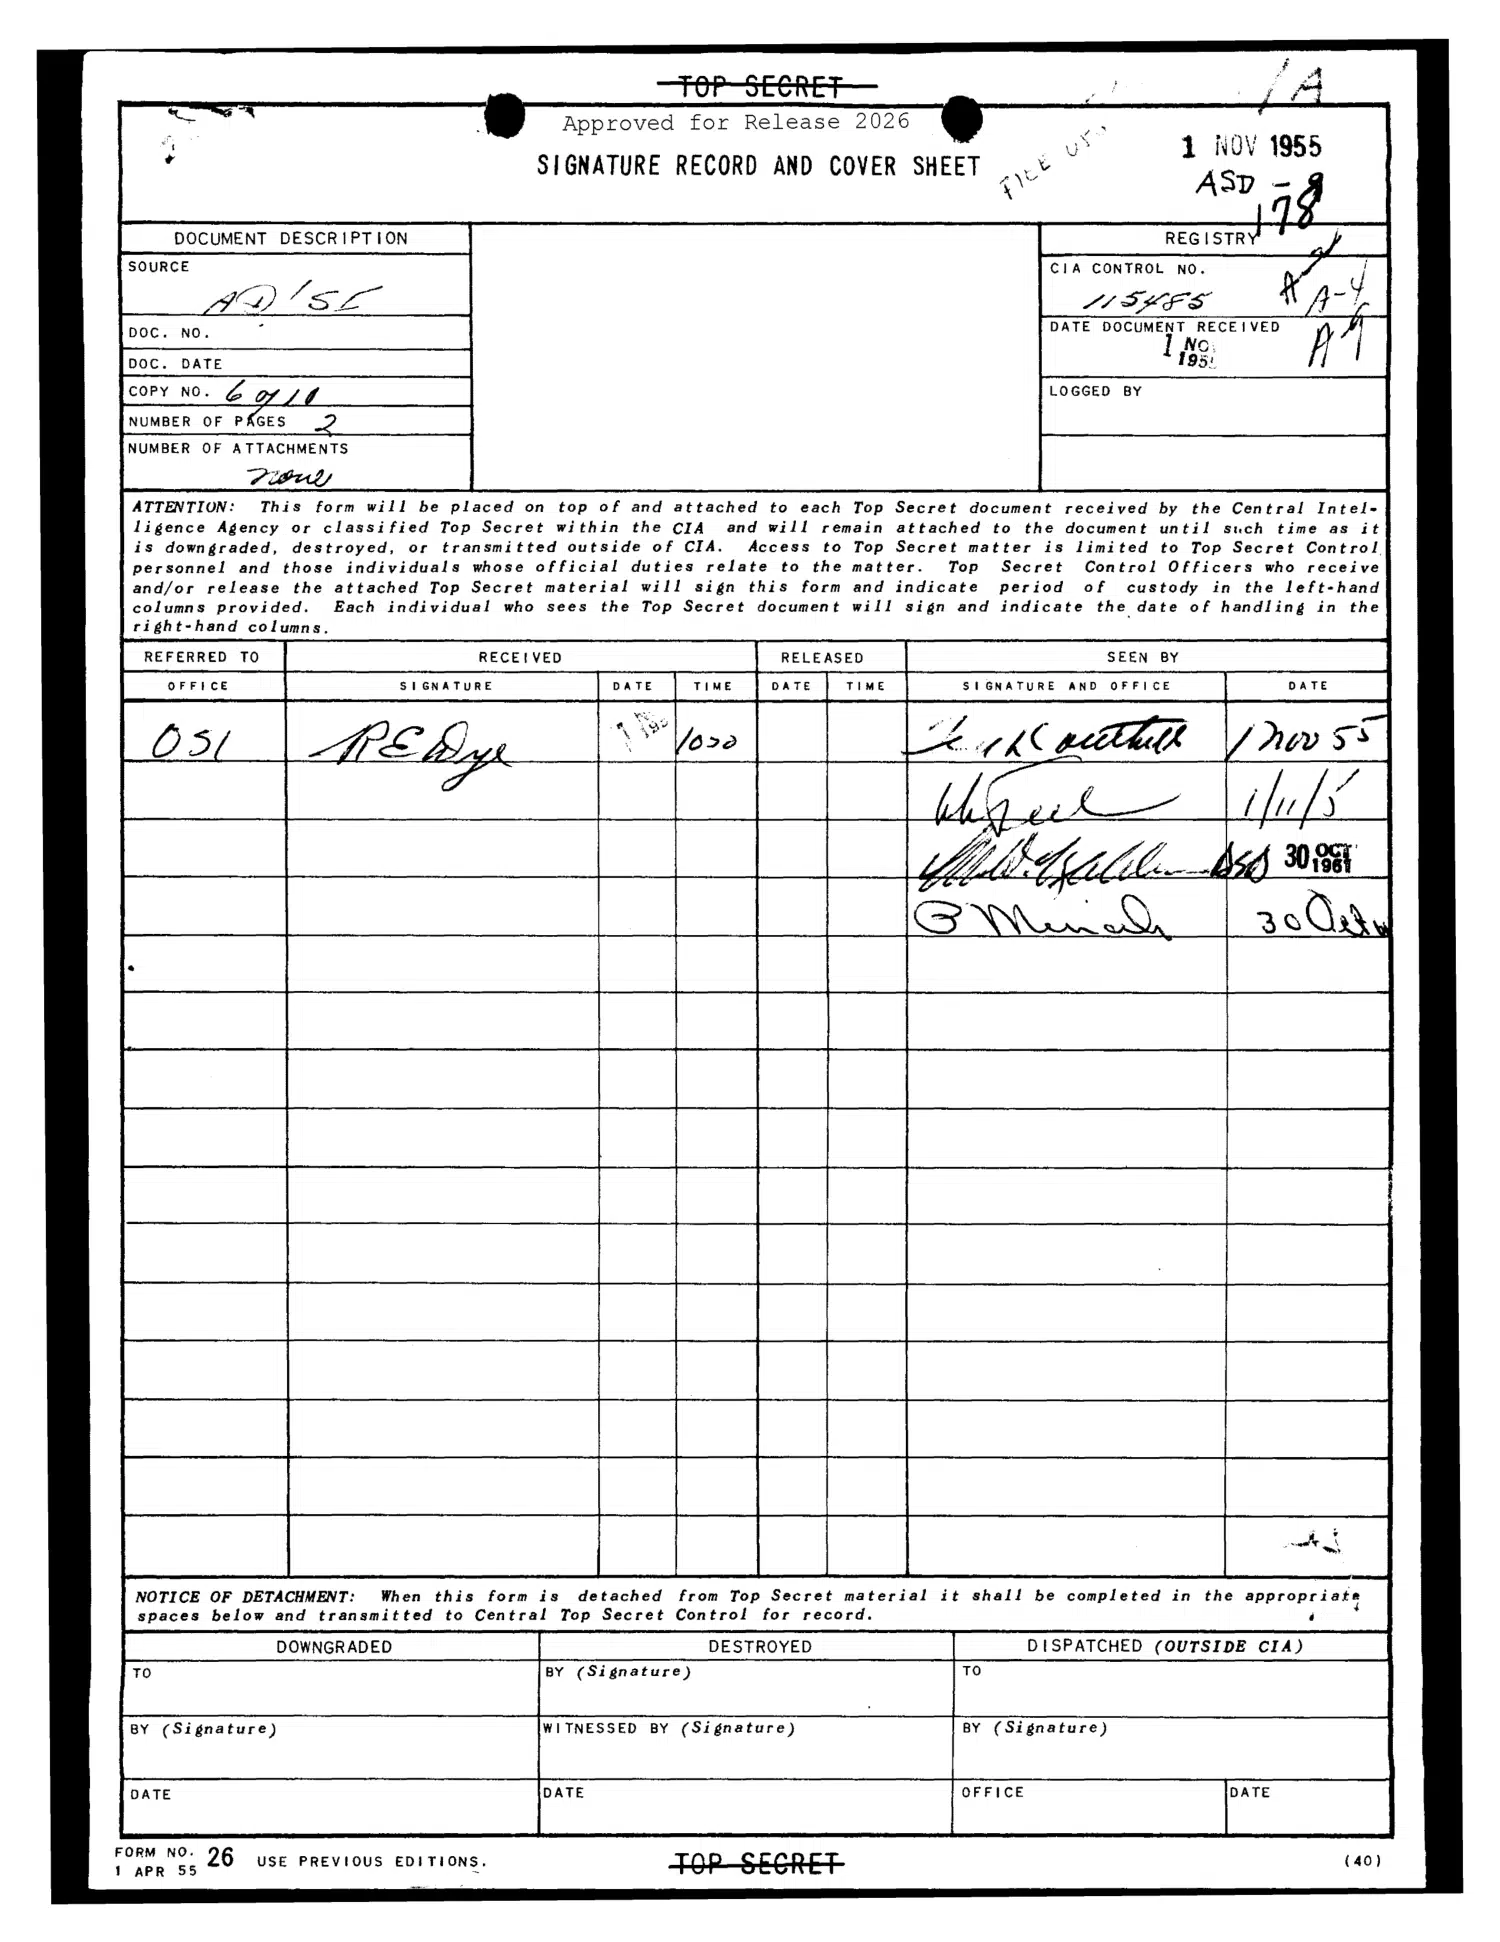 TOP SECRET
/A
Approved for Release 2026
SIGNATURE RECORD AND COVER SHEET
FILE
1 NOV 1955
ASD - 9
178
DOCUMENT DESCRIPTION
REGISTRY
SOURCE
AD/SI
CIA CONTROL NO.
115485
A-4
DOC. NO.
DATE DOCUMENT RECEIVED
1 NO
195
A 9
DOC. DATE
COPY NO. 6 of 10
LOGGED BY
NUMBER OF PAGES 2
NUMBER OF ATTACHMENTS
none
ATTENTION: This form will be placed on top of and attached to each Top Secret document received by the Central Intel-
ligence Agency or classified Top Secret within the CIA and will remain attached to the document until such time as it
is downgraded, destroyed, or transmitted outside of CIA. Access to Top Secret matter is limited to Top Secret Control
personnel and those individuals whose official duties relate to the matter. Top Secret Control Officers who receive
and/or release the attached Top Secret material will sign this form and indicate period of custody in the left-hand
columns provided. Each individual who sees the Top Secret document will sign and indicate the date of handling in the
right-hand columns.
REFERRED TO RECEIVED RELEASED SEEN BY
OFFICE SIGNATURE DATE TIME DATE TIME SIGNATURE AND OFFICE DATE
OSI R E Dye 1000 1 Nov 55
1/11/5
30 OCT 1961
30 Oct
NOTICE OF DETACHMENT: When this form is detached from Top Secret material it shall be completed in the appropriate
spaces below and transmitted to Central Top Secret Control for record.
DOWNGRADED DESTROYED DISPATCHED (OUTSIDE CIA)
TO BY (Signature) TO
BY (Signature) WITNESSED BY (Signature) BY (Signature)
DATE DATE OFFICE DATE
FORM NO. 26 USE PREVIOUS EDITIONS.
1 APR 55
TOP SECRET
(40)